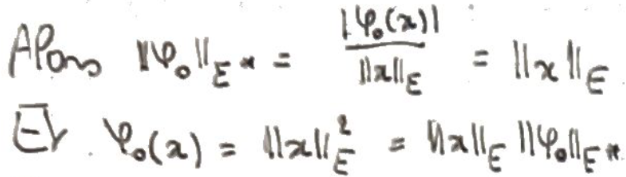 Alors ||φ₀||_E* = |φ₀(x)| / ||x||_E = ||x||_E
Et φ₀(x) = ||x||²_E = ||x||_E ||φ₀||_E*.